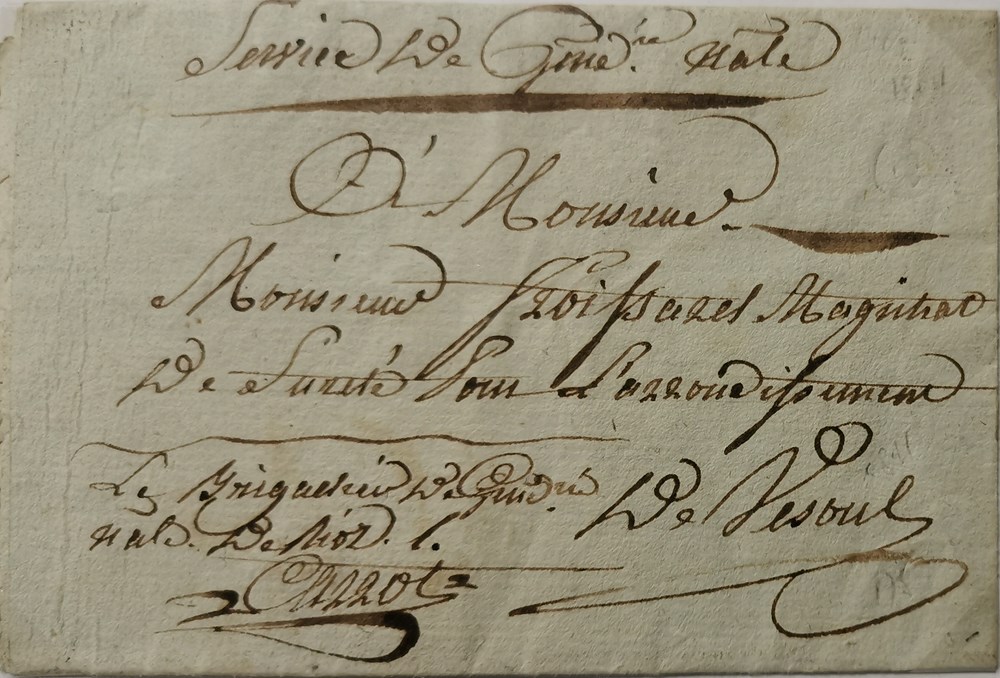 Service De Gme.rie nale
A Monsieur.
Monsieur Froissard Magistrat
De Sureté Pour L'arrondissement
De Vesoul
Le Brigadier De Gmed.rie
Nale. De
Carrot